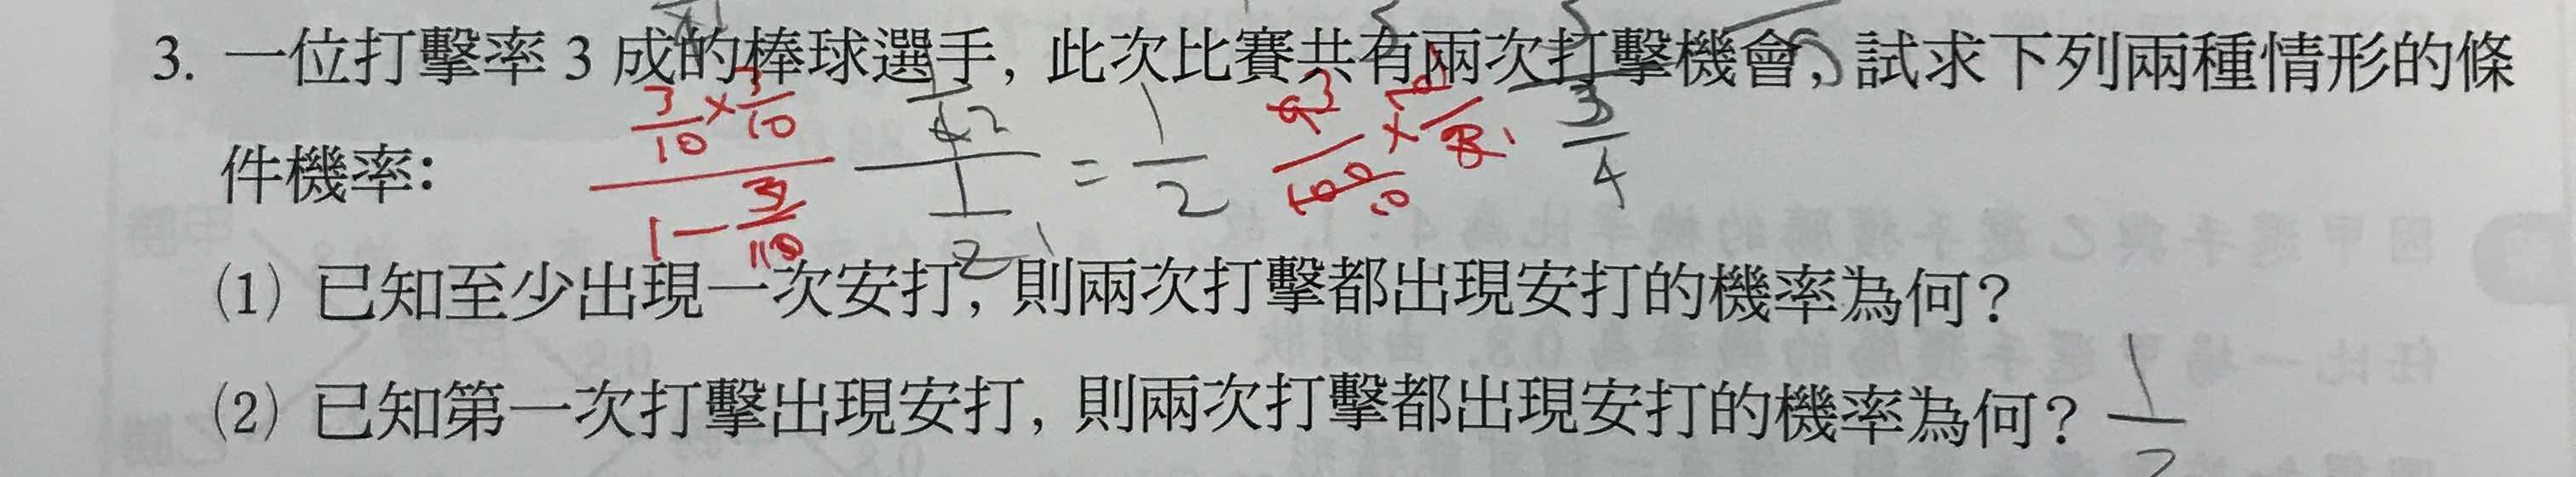 3. 一位打擊率 3 成的棒球選手, 此次比賽共有兩次打擊機會, 試求下列兩種情形的條
件機率:
3/10 × 3/10
1 - 3/10
= 1/2
3/4
(1) 已知至少出現一次安打, 則兩次打擊都出現安打的機率為何?
(2) 已知第一次打擊出現安打, 則兩次打擊都出現安打的機率為何? 1/2